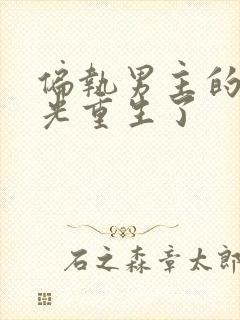 偏執男主的
光重生了
石之森章太郎